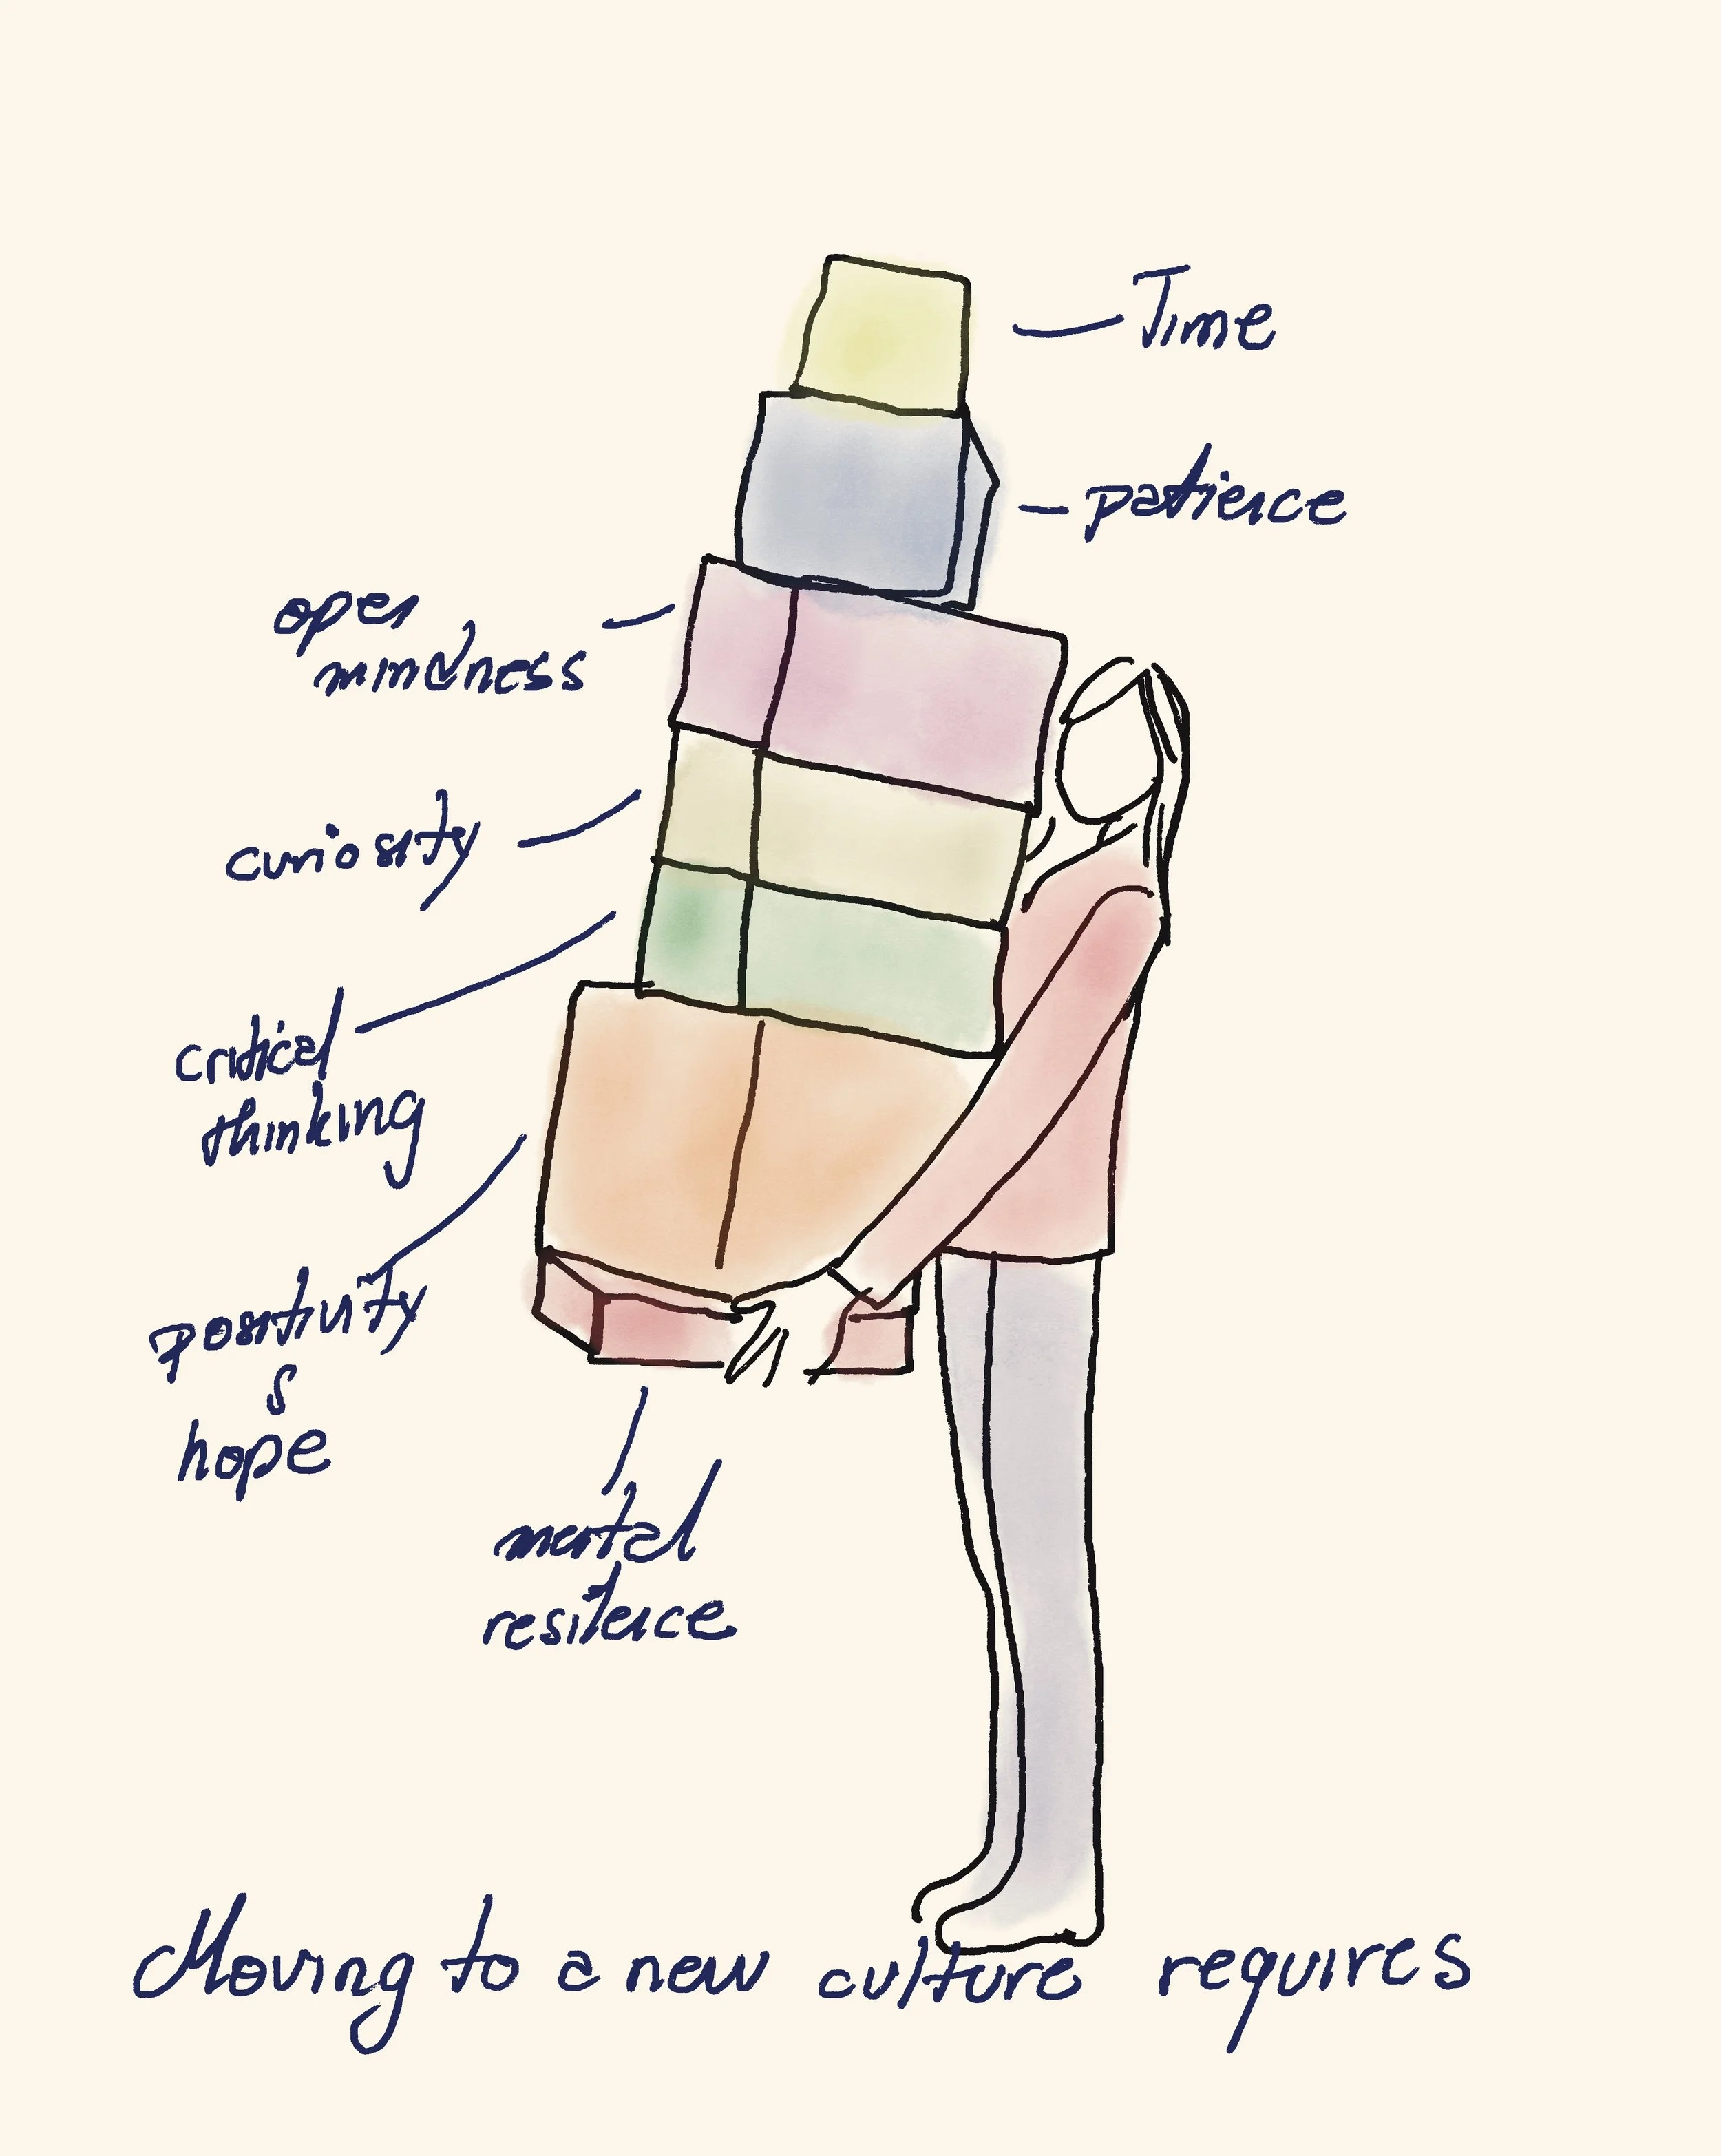 Time
patience
open
mindness
curiosity
critical
thinking
positivity
&
hope
mental
resilence
Moving to a new culture requires